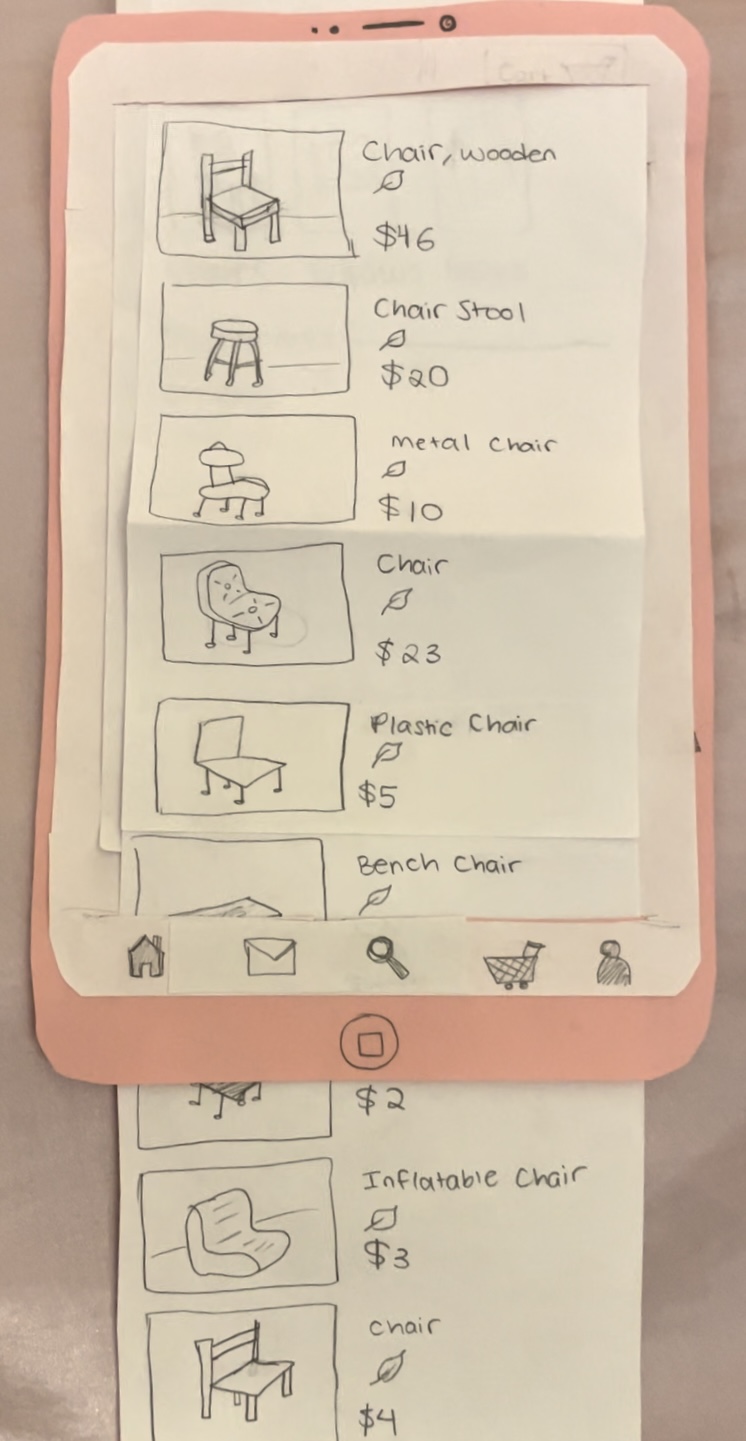 Cart
Chair, wooden
$46
Chair Stool
$20
metal chair
$10
Chair
$23
Plastic Chair
$5
Bench Chair
$2
Inflatable Chair
$3
chair
$4